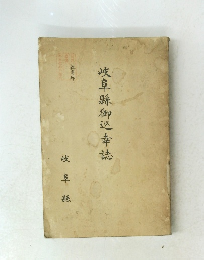 岐阜縣御巡幸誌
岐阜縣